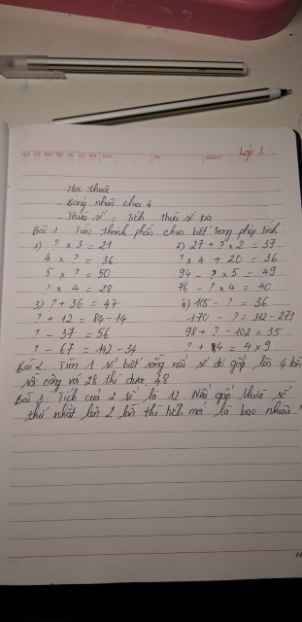 Lớp 3
Học thuộc
- Bảng nhân chia 4
- Thừa số : Tích thừa số kia
Bài 1 Tìm thành phần chưa biết trong phép tính
1) ? x 3 = 21 2) 27 + ? x 2 = 37
4 x ? = 36 ? x 4 + 20 = 36
5 x ? = 50 94 - ? x 5 = 49
? x 4 = 28 76 - ? x 4 = 40
3) ? + 36 = 47 4) 105 - ? = 36
? + 12 = 84 - 14 170 - ? = 312 - 271
? - 37 = 56 98 + ? - 102 = 35
? - 67 = 142 - 34 ? + 84 = 4 x 9
Bài 2. Tìm 1 số biết rằng nếu số đó gấp lên 4 lần
rồi cộng với 28 thì được 48
Bài 3. Tích của 2 số là 12. Nếu gấp thừa số
thứ nhất lên 2 lần thì tích mới là bao nhiêu ?